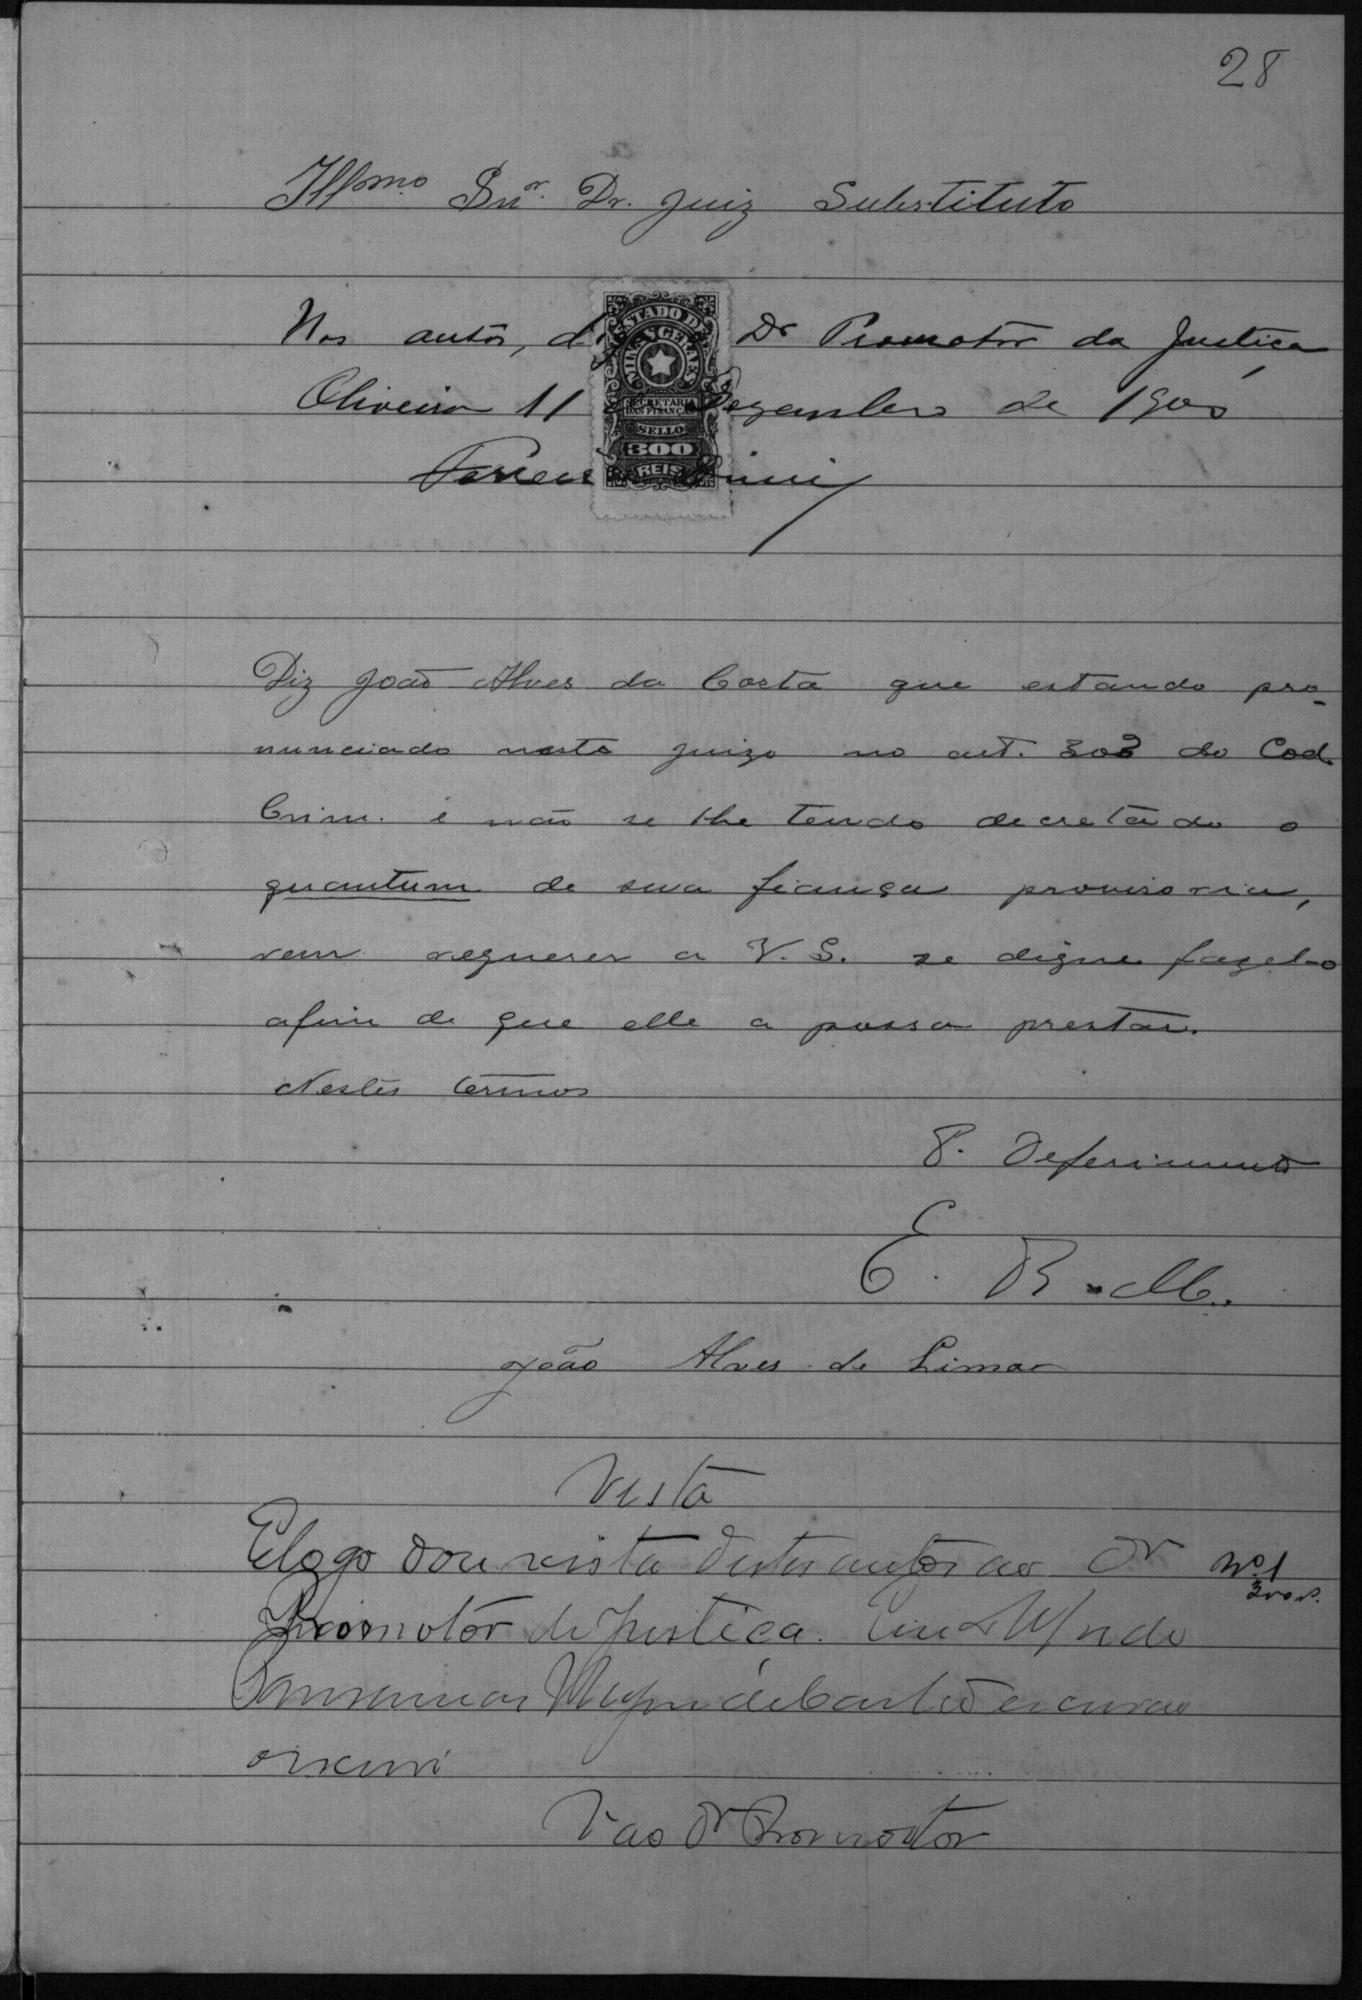 28
Illmo. Snr. Dr. Juiz Substituto
Nos autos, diga o Dr Promotor da Justiça
Oliveira 11 de Dezembro de 1900
ESTADO DE
MINAS GERAES
SECRETARIA
DAS FINANÇAS
SELLO
300
REIS
Diz João Alves da Costa que estando pro-
nunciado neste juizo no art. 303 do Cod.
Crim. e não se lhe tendo decretado o
quantum de sua fiança provisoria,
vem requerer a V. S. se digne fazel-o
afim de que elle a possa prestar.
Nestes termos
P. Deferimento
E. R. M.
João Alves de Lima
Vista
E logo dou vista destes autos ao Dr
Nº 1
300 rs.
Promotor de Justiça. Eu
escrivão
escrevi
V ao Dr Promotor